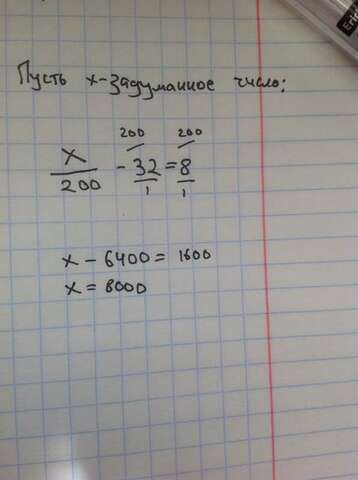 Пусть x-задуманное число:
200 200
x/200 - 32/1 = 8/1
x - 6400 = 1600
x = 8000